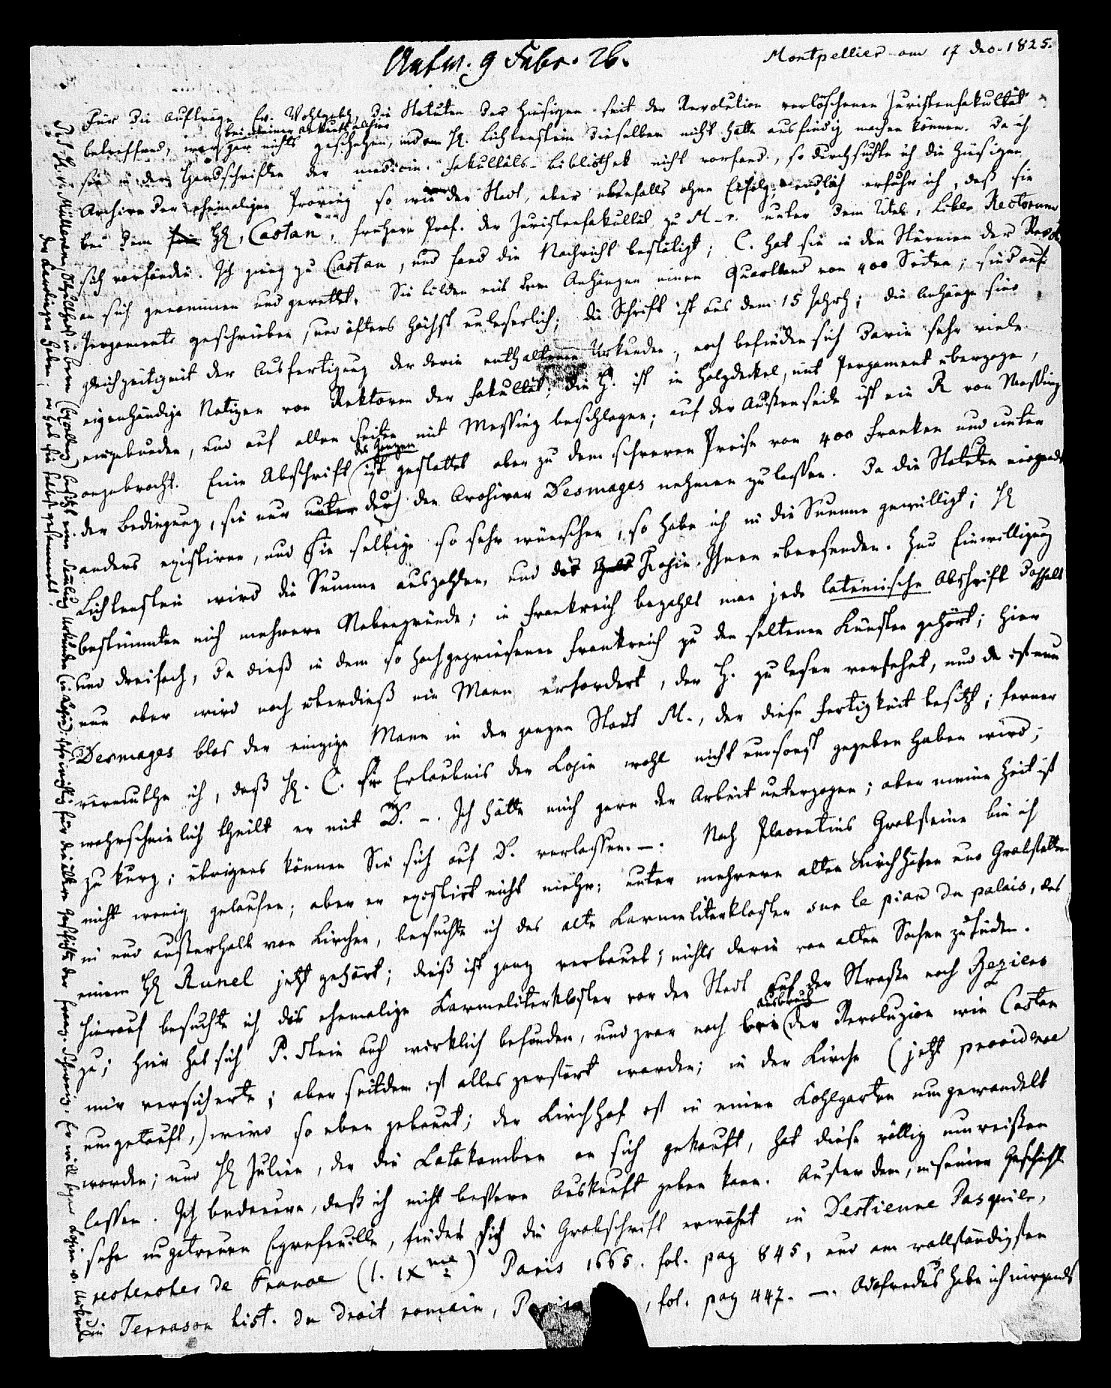 Antw. 9 Febr. 26.
Montpellier am 17 Dec. 1825.
Für die Aufträge Ew. Wohlgeb. die Statuten der hiesigen seit der Revolution verloschenen Juristenfakultät
betreffend, war gar nichts geschehen, indem H. Lichtenstein dieselben nicht hatte ausfindig machen können. Da ich
bei meiner Ankunft allhier
sie in den Handschriften der medicin. Fakultäts-Bibliothek nicht vorfand, so durchsuchte ich die hiesigen
Archive der ehemaligen Provinz so wie der Stadt, aber ebenfalls ohne Erfolg; endlich erfuhr ich, daß sie
bei dem H. Castan, frühern Prof. der Juristenfakultät zu M-r. unter dem Titel, Liber Rectorum
sich vorfände. Ich ging zu Castan, und fand die Nachricht bestätigt; C. hat sie in den Stürmen der Revol.
an sich genommen und gerettet. Sie bilden mit den Anhängen einen Quartband von 400 Seiten; sind auf
Pergament geschrieben, und öfters höchst unleserlich; die Schrift ist aus dem 15 Jahrh; die Anhänge sind
gleichzeitig mit der Ausfertigung der darin enthaltenen Urkunden, auch befinden sich darin sehr viele
eigenhändige Notizen von Rektoren der Fakultät; die H. ist in Holzdeckel, mit Pergament überzogen,
eingebunden, und auf allen Seiten mit Messing beschlagen; auf der Außenseite ist ein R von Messing
angebracht. Eine Abschrift des Ganzen ist gestattet aber zu dem schweren Preise von 400 Franken und unter
der Bedingung, sie nur durch den Archivar Desmages nehmen zu lassen. Da die Statuten nirgends
anders existiren, und Sie selbige so sehr wünschen, so habe ich in die Summe gewilligt; H
Lichtenstein wird die Summe auszahlen, und die Kopie Ihnen übersenden. Zur Einwilligung
bestimmten mich mehrere Nebengründe; in Frankreich bezahlt man jede lateinische Abschrift doppelt
und dreifach, da dieß in dem so hochgepriesenen Frankreich zu den seltenen Künsten gehört; hier
nun aber wird noch überdieß ein Mann erfordert, der H. zu lesen versteht, und da ist nun
Desmages blos der einzige Mann in der ganzen Stadt M., der diese Fertigkeit besitzt; ferner
vermuthe ich, daß H. C. die Erlaubnis der Copie wohl nicht umsonst gegeben haben wird;
wahrscheinlich theilt er mit D. –. Ich hätte mich gern der Arbeit unterzogen; aber meine Zeit ist
zu kurz; übrigens können Sie sich auf D. verlassen. –. Nach Placentins Grabsteine bin ich
nicht wenig gelaufen; aber er existirt nicht mehr; unter mehrern alten Kirchhöfen und Grabstätten
in und außerhalb von Kirchen, besuchte ich das alte Karmeliterkloster sur le plan du palais, das
einem H Runel jetzt gehört; dieß ist ganz verbaut; nichts darin von alten Sachen zu finden.
Hierauf besuchte ich das ehemalige Karmeliterkloster vor der Stadt auf der Straße nach Beziers
zu; hier hat sich P. Stein auch wirklich befunden, und zwar noch bei Ausbruch der Revoluzion wie Castan
mir versicherte; aber seitdem ist alles zerstört worden; in der Kirche (jetzt providence
umgetauft,) wird so eben gebaut; der Kirchhof ist in einen Kohlgarten umgewandelt
worden; und H Julien, der die Catakomben an sich gekauft, hat diese völlig umreißen
lassen. Ich bedauere, daß ich nicht bessere Auskunft geben kann. Außer dem, in seiner Geschichte
sehr ungetreuen Egrefeuille, findet sich die Grabschrift erwähnt in D'estienne Pasquier,
recherches de France (l. IX me) Paris 1665. fol. pag 845, und am vollständigsten
in Terrason hist. du droit romain, Paris, fol. pag 447. –. Odofredus habe ich nirgends